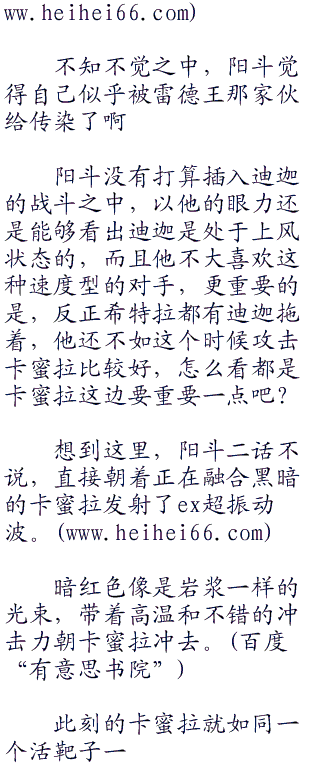 ww.heihei66.com)
不知不觉之中，阳斗觉
得自己似乎被雷德王那家伙
给传染了啊
阳斗没有打算插入迪迦
的战斗之中，以他的眼力还
是能够看出迪迦是处于上风
状态的，而且他不大喜欢这
种速度型的对手，更重要的
是，反正希特拉都有迪迦拖
着，他还不如这个时候攻击
卡蜜拉比较好，怎么看都是
卡蜜拉这边要重要一点吧？
想到这里，阳斗二话不
说，直接朝着正在融合黑暗
的卡蜜拉发射了ex超振动
波。(www.heihei66.com)
暗红色像是岩浆一样的
光束，带着高温和不错的冲
击力朝卡蜜拉冲去。(百度
“有意思书院”)
此刻的卡蜜拉就如同一
个活靶子一